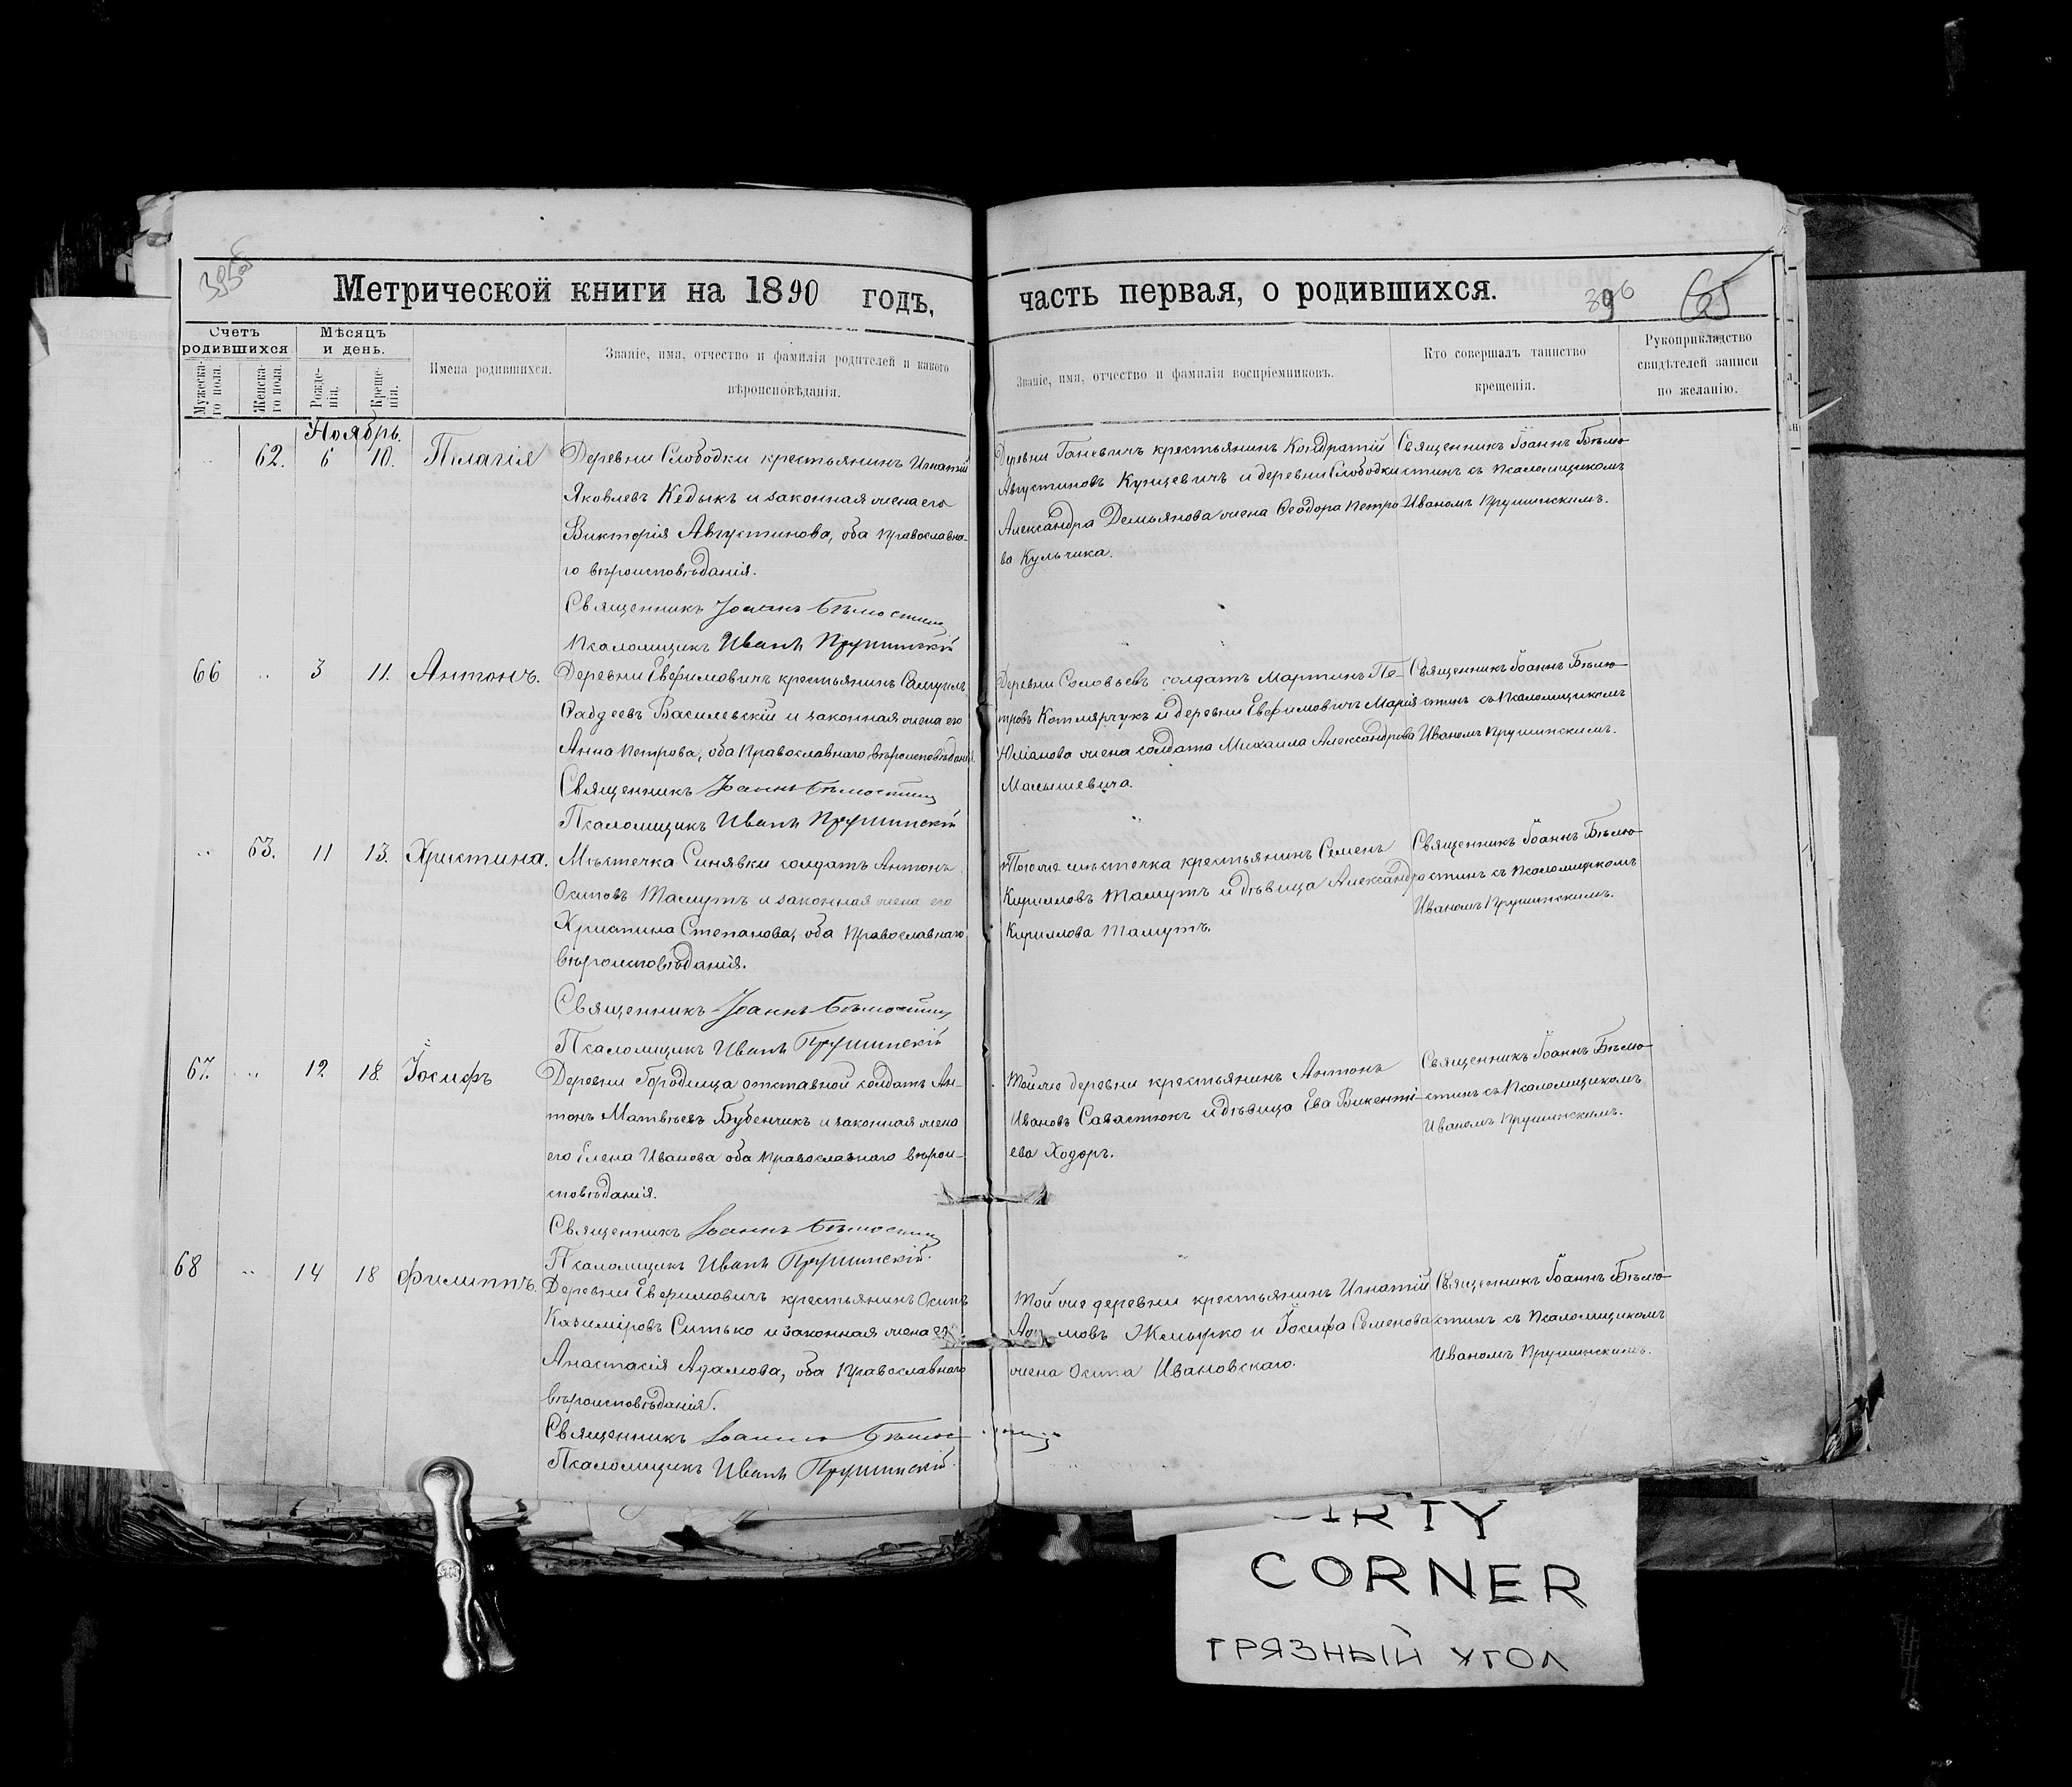 395об
Метрической книги на 1890 годъ,
Счетъ родившихся
Мѣсяцъ и день.
Мужеска-го пола.
Женска-го пола.
Рожде-нія.
Креще-нія.
Имена родившихся.
Званіе, имя, отчество и фамилія родителей и какого
вѣроисповѣданія.
Ноябрь.
62. 6 10. Пелагія
Деревни Слободки крестьянинъ Игнатій
Яковлевъ Кедыкъ и законная жена его
Викторія Августинова, оба православна-
го вѣроисповѣданія.
Священникъ Іоаннъ Бѣлюстинъ
Псаломщикъ Иванъ Прушинскій
66 3 11. Антонъ.
Деревни Евфимовичъ крестьянинъ Самуилъ
Фаддеевъ Василевскій и законная жена его
Анна Петрова, оба Православнаго вѣроисповѣданія.
Священникъ Іоаннъ Бѣлюстинъ
Псаломщикъ Иванъ Прушинскій
63. 11 13. Христина.
Мѣстечка Синявки солдатъ Антонъ
Осиповъ Мамутъ и законная жена его
Христина Степанова, оба Православнаго
вѣроисповѣданія.
Священникъ Іоаннъ Бѣлюстинъ
Псаломщикъ Иванъ Прушинскій
67. 12 18. Іосифъ
Деревни Городища отставной солдатъ Ан-
тонъ Матвѣевъ Бубенчикъ и законная жена
его Елена Иванова оба Православнаго вѣрои-
сповѣданія.
Священникъ Іоаннъ Бѣлюстинъ
Псаломщикъ Иванъ Прушинскій.
68 14 18 Филиппъ.
Деревни Евфимовичъ крестьянинъ Осипъ
Казиміровъ Ситько и законная жена его
Анастасія Адамова, оба Православнаго
вѣроисповѣданія.
Священникъ Іоаннъ Бѣлюстинъ
Псаломщикъ Иванъ Прушинскій.
часть первая, о родившихся.
396
65
Званіе, имя, отчество и фамилія воспріемниковъ.
Кто совершалъ таинство
крещенія.
Рукоприкладство
свидѣтелей записи
по желанію.
Деревни Ганевичъ крестьянинъ Кондратій
Августиновъ Кунцевичъ и деревни Слободки
Александра Демьянова жена Ѳеодора Петро
ва Кульчика.
Священникъ Іоаннъ Бѣлю-
стинъ съ Псаломщикомъ
Иваномъ Прушинскимъ.
Деревни Соловьевъ солдатъ Мартинъ Пе-
тровъ Котлярчукъ и деревни Евфимовичъ Марія
Юліанова жена солдата Михаила Александрова
Малышевича.
Священникъ Іоаннъ Бѣлю-
стинъ съ Псаломщикомъ
Иваномъ Прушинскимъ.
Того же мѣстечка крестьянинъ Семенъ
Кирилловъ Мамутъ и дѣвица Александра
Кириллова Мамутъ.
Священникъ Іоаннъ Бѣлю-
стинъ съ Псаломщикомъ
Иваномъ Прушинскимъ.
Той же деревни крестьянинъ Антонъ
Ивановъ Савастюкъ и дѣвица Ева Викенті-
ева Ходоръ.
Священникъ Іоаннъ Бѣлю-
стинъ съ Псаломщикомъ
Иваномъ Прушинскимъ.
Той же деревни крестьянинъ Игнатій
Жмырко и Іосифа Семенова
жена Осипа Ивановскаго.
Священникъ Іоаннъ Бѣлю-
стинъ съ Псаломщикомъ
Иваномъ Прушинскимъ.
CORNER
ГРЯЗНЫЙ УГОЛ